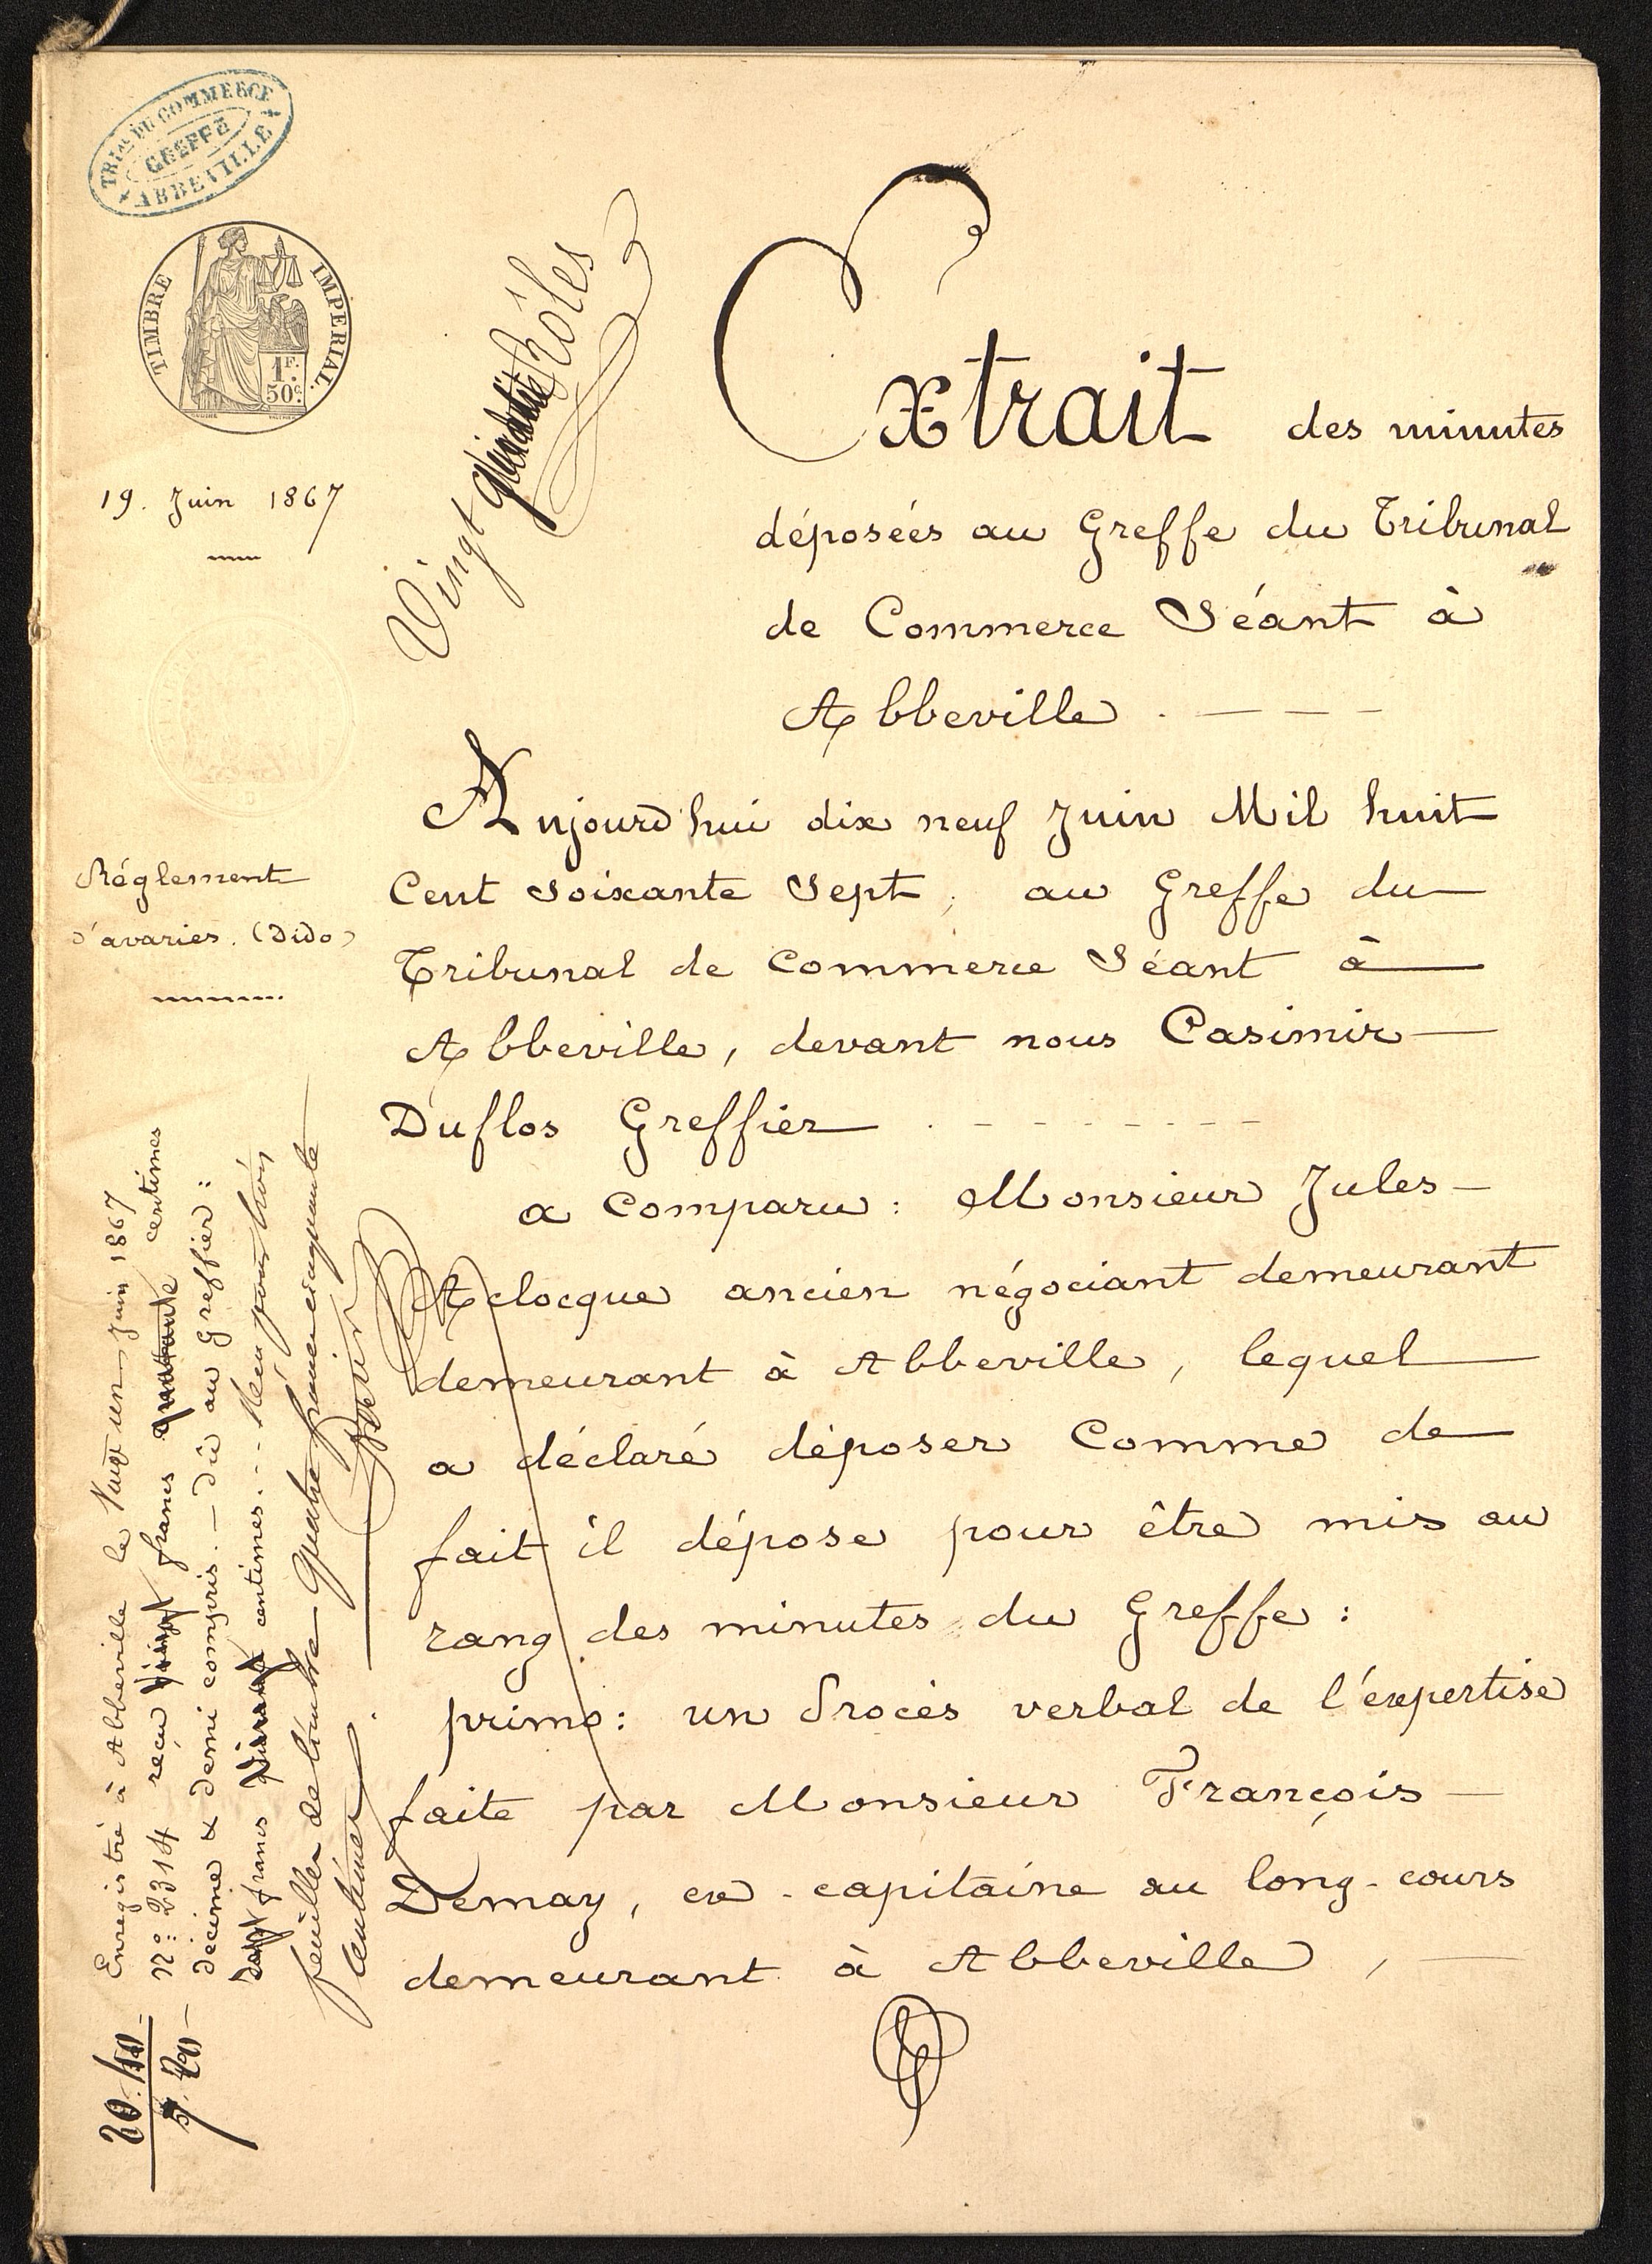 TRIal DU COMMERCE
GREFFE
ABBEVILLE
TIMBRE IMPERIAL.
1F.
50c.
19. Juin 1867
Vingt Rôles
Extrait des minutes
déposéés au Greffe du Tribunal
de Commerce Séant à
Abbeville . — — —
Réglement
d'avaries. (Dido)
Aujourd'hui dix neuf Juin Mil huit
Cent soixante Sept, au Greffe du
Tribunal de Commerce Séant à
Abbeville, devant nous Casimir
Duflos Greffier
a Comparu : Monsieur Jules
Aclocque ancien négociant demeurant
demeurant à Abbeville, lequel
a déclaré déposer Comme de
fait il dépose pour être mis au
rang des minutes du Greffe :
primo: un Procès verbal de l'expertise
faite par Monsieur François
Demay, ex-capitaine au long-cours
demeurant à Abbeville,
Enregistré à Abbeville le Vingt un Juin 1867
No: 2314 reçu vingt francs quarante centimes
décime & demi compris. — dû au Greffier :
francs centimes
feuilles de timbre quatre francs cinquante
centimes